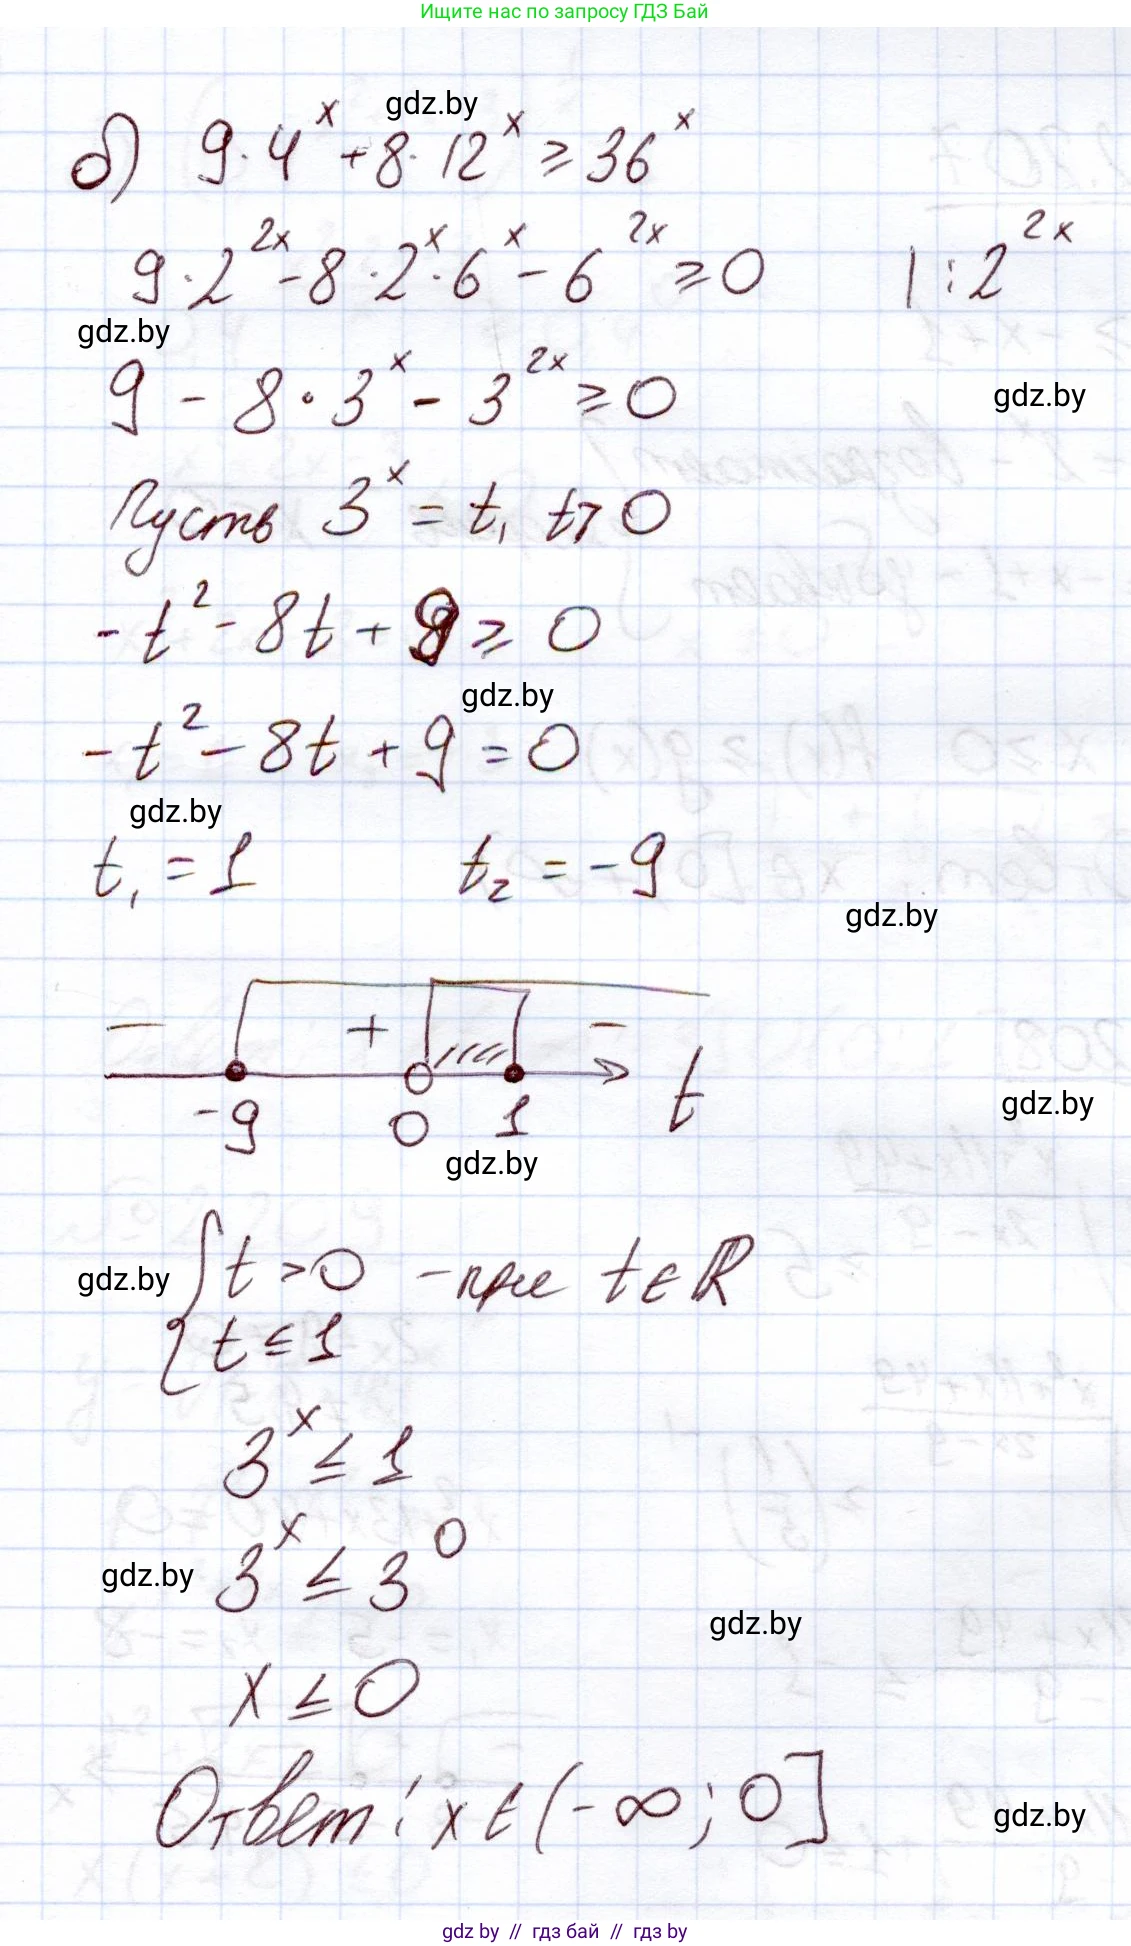 Ищите нас по запросу ГДЗ Бай
gdz.by
б) 9·4^x + 8·12^x ≥ 36^x
9·2^2x - 8·2^x·6^x - 6^2x ≥ 0 | : 2^2x
gdz.by
9 - 8·3^x - 3^2x ≥ 0
gdz.by
Пусть 3^x = t, t > 0
-t² - 8t + 9 ≥ 0
gdz.by
-t² - 8t + 9 = 0
gdz.by
t₁ = 1 t₂ = -9
gdz.by
− + −
-9 0 1 t
gdz.by
gdz.by
{ t > 0 - при t ∈ R
gdz.by
t ≤ 1
3^x ≤ 1
3^x ≤ 3^0
gdz.by
gdz.by
x ≤ 0
Ответ: x ∈ (-∞; 0]
gdz.by
gdz by // гдз бай // гдз by